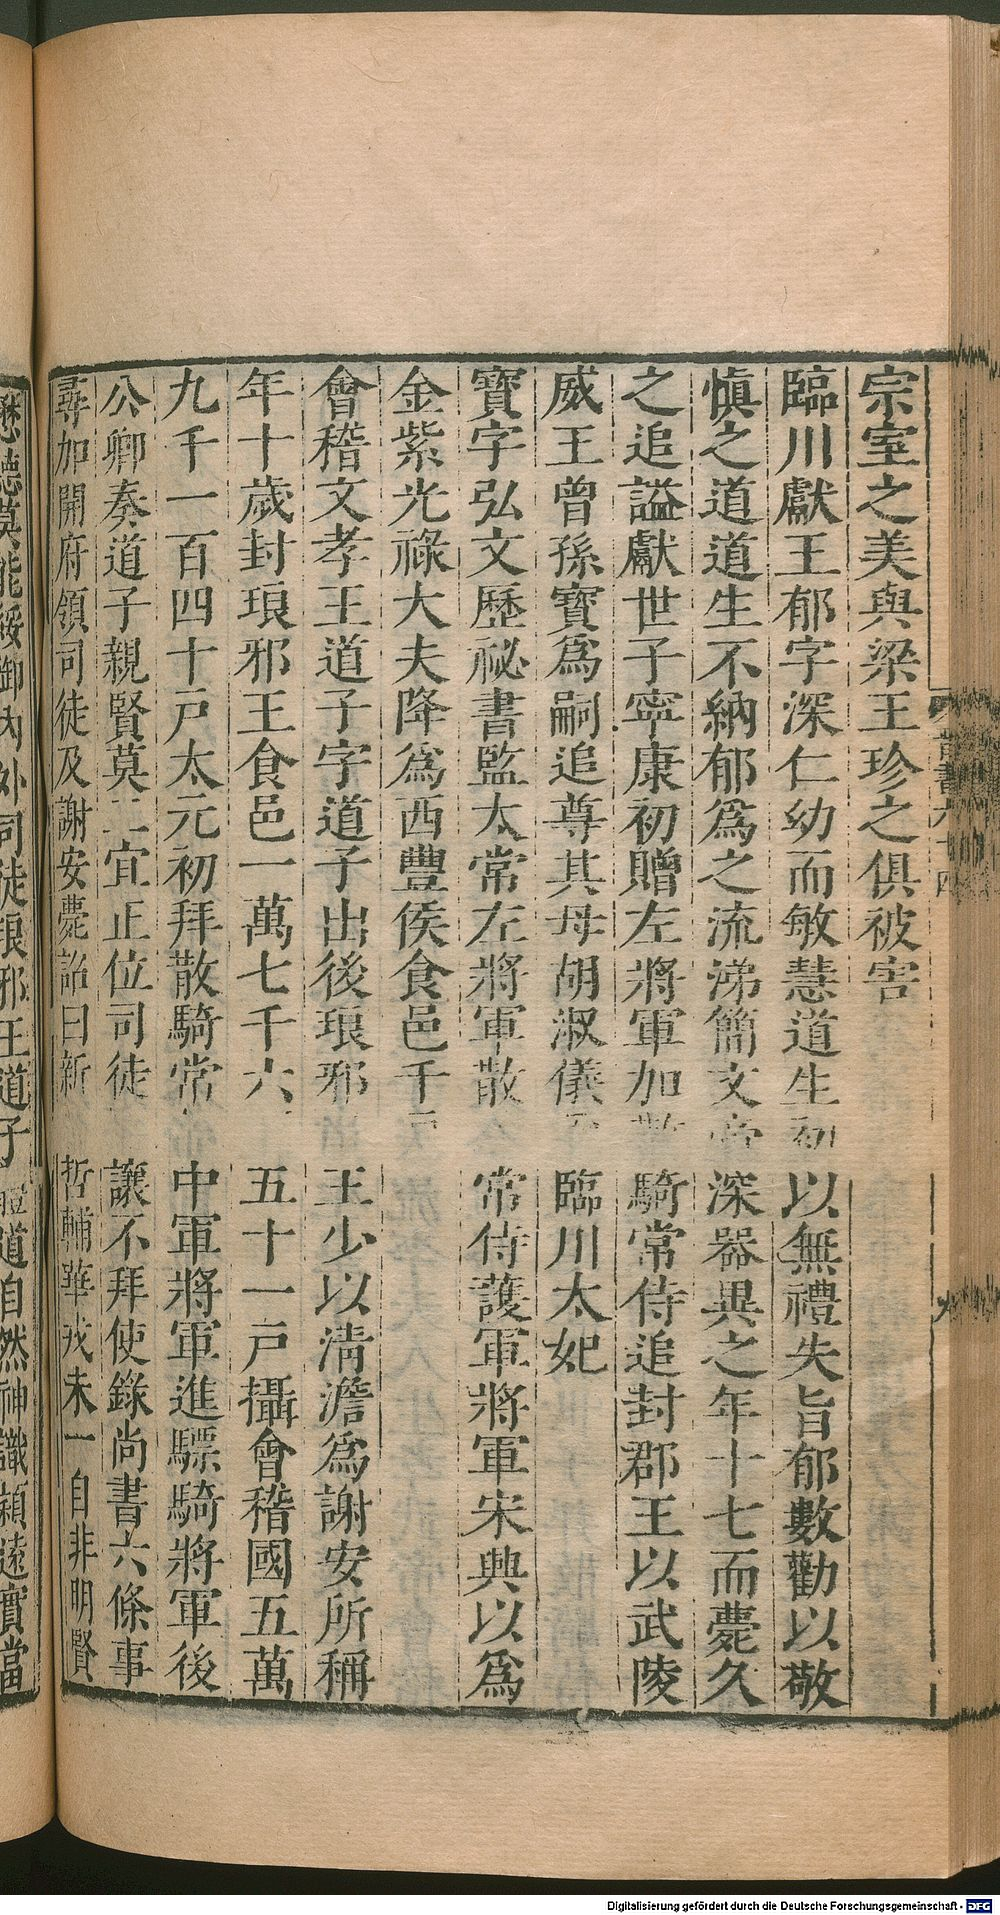 晉書六十四
九
宗室之美與梁王珍之俱被害
臨川獻王郁字深仁幼而敏慧道生初以無禮失旨郁數勸以敬
慎之道道生不納郁爲之流涕簡文帝深器異之年十七而薨久
之追謚獻世子寧康初贈左將軍加散騎常侍追封郡王以武陵
威王曾孫寶爲嗣追尊其母胡淑儀爲臨川太妃
寶字弘文歷祕書監太常左將軍散常侍護軍將軍宋興以爲
金紫光祿大夫降爲西豐侯食邑千
會稽文孝王道子字道子出後琅邪王少以淸澹爲謝安所稱
年十歲封琅邪王食邑一萬七千六五十一戸攝會稽國五萬
九千一百四十戸太元初拜散騎常中軍將軍進驃騎將軍後
公卿奏道子親賢莫二宜正位司徒讓不拜使錄尚書六條事
尋加開府領司徒及謝安薨詔曰新哲輔華戎未一自非明賢
懋德莫能綏御內外司徒琅邪王道子體道自然神識穎遠實當
Digitalisierung gefördert durch die Deutsche Forschungsgemeinschaft - DFG